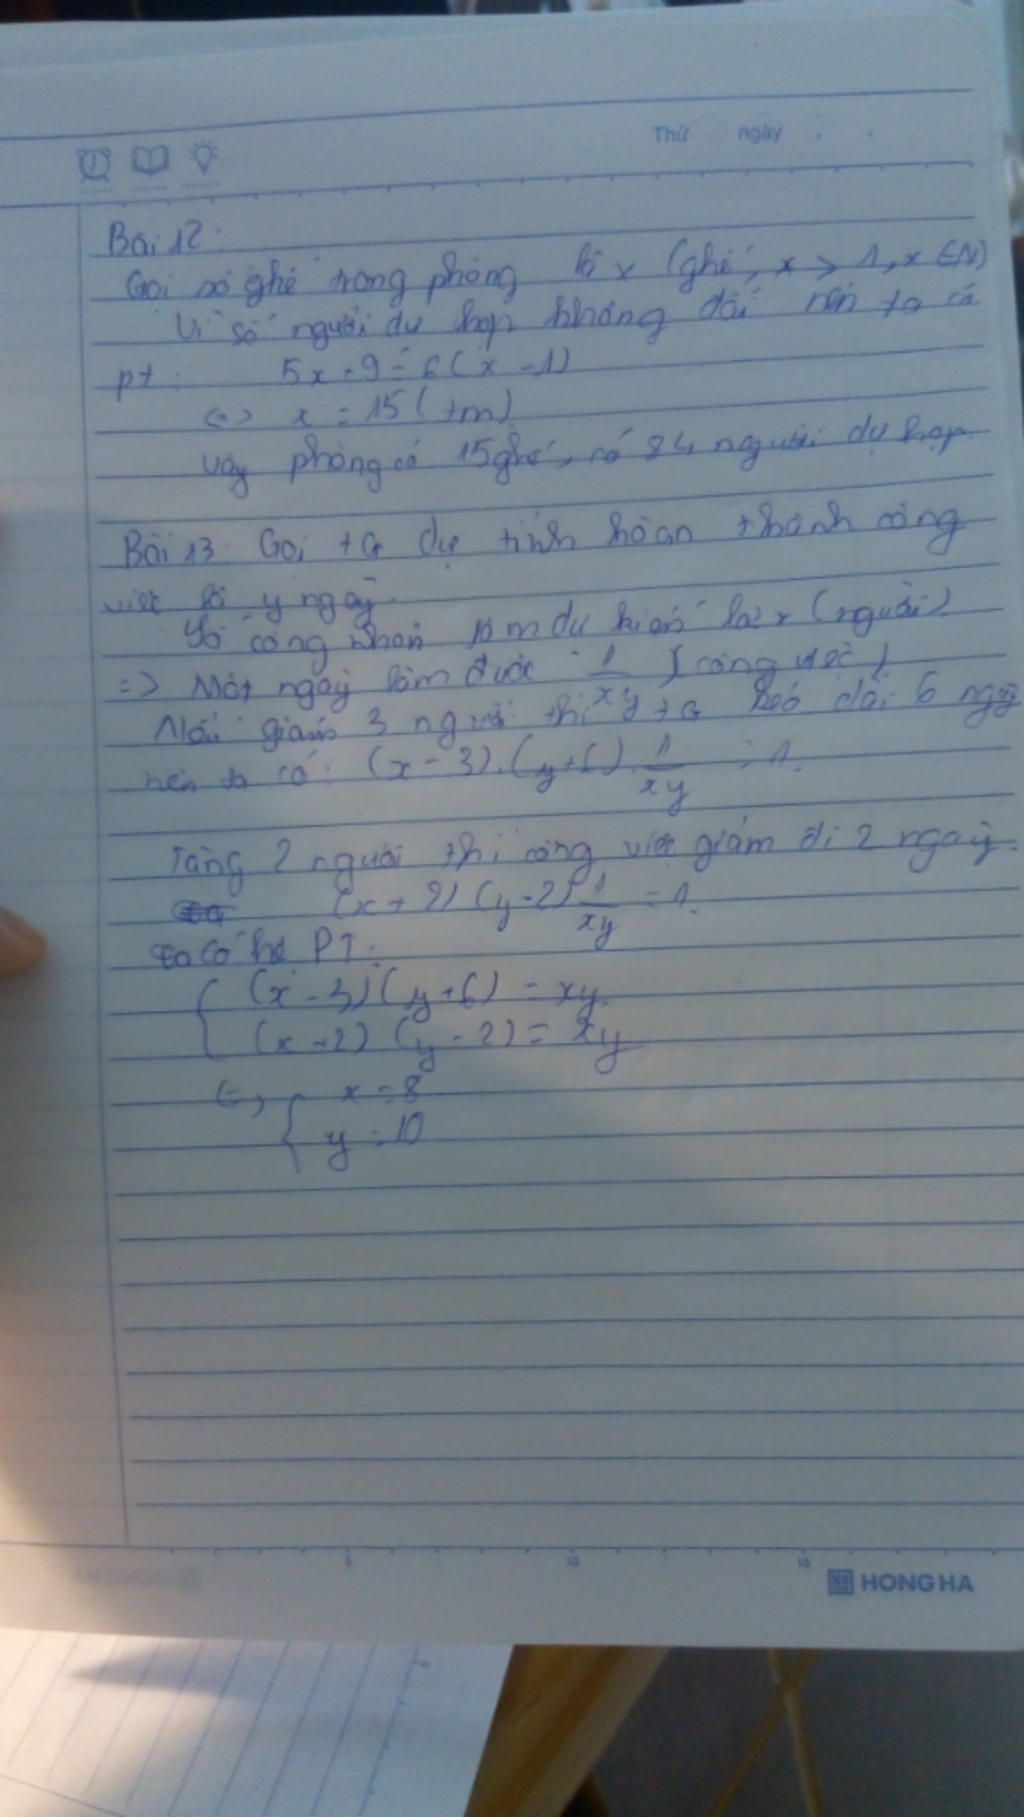 Thứ ngày . .
Bài 12:
Gọi số ghế trong phòng là x (ghế, x > 1, x ∈ N)
Vì số người dự họp không đổi nên ta có
pt: 5x + 9 = 6(x - 1)
<=> x = 15 (tm)
Vậy phòng có 15 ghế, có 84 người dự họp
Bài 13: Gọi tG dự tính hoàn thành công
việc là y ngày.
Số công nhân làm dự kiến là x (người)
=> Một ngày làm được 1/xy (công việc)
Nếu giảm 3 người thì tG kéo dài 6 ngày
nên ta có: (x - 3).(y + 6).1/xy = 1.
Tăng 2 người thì công việc giảm đi 2 ngày.
(x + 2) (y - 2) 1/xy = 1.
ta có hệ PT:
(x - 3)(y + 6) = xy.
(x + 2) (y - 2) = xy
<=> x = 8
y = 10
5 10 15
HONG HA